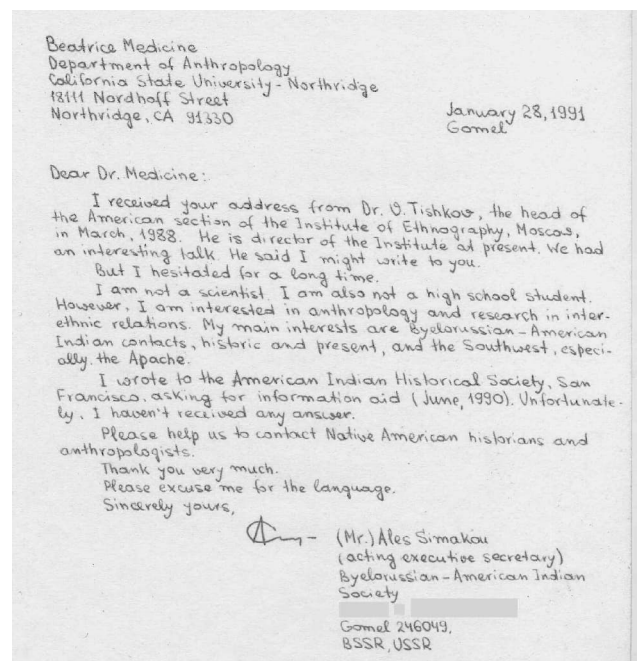 Beatrice Medicine
Department of Anthropology
California State University - Northridge
18111 Nordhoff Street
Northridge, CA 91330
January 28, 1991
Gomel
Dear Dr. Medicine:
I received your address from Dr. V. Tishkov, the head of
the American section of the Institute of Ethnography, Moscow,
in March, 1988. He is director of the Institute at present. We had
an interesting talk. He said I might write to you.
But I hesitated for a long time.
I am not a scientist. I am also not a high school student.
However, I am interested in anthropology and research in inter-
ethnic relations. My main interests are Byelorussian-American
Indian contacts, historic and present, and the Southwest, especi-
ally, the Apache.
I wrote to the American Indian Historical Society, San
Francisco, asking for information aid (June, 1990). Unfortunate-
ly, I haven't received any answer.
Please help us to contact Native American historians and
anthropologists.
Thank you very much.
Please excuse me for the language.
Sincerely yours,
(Mr.) Ales Simakou
(acting executive secretary)
Byelorussian-American Indian
Society
Gomel 246049,
BSSR, USSR